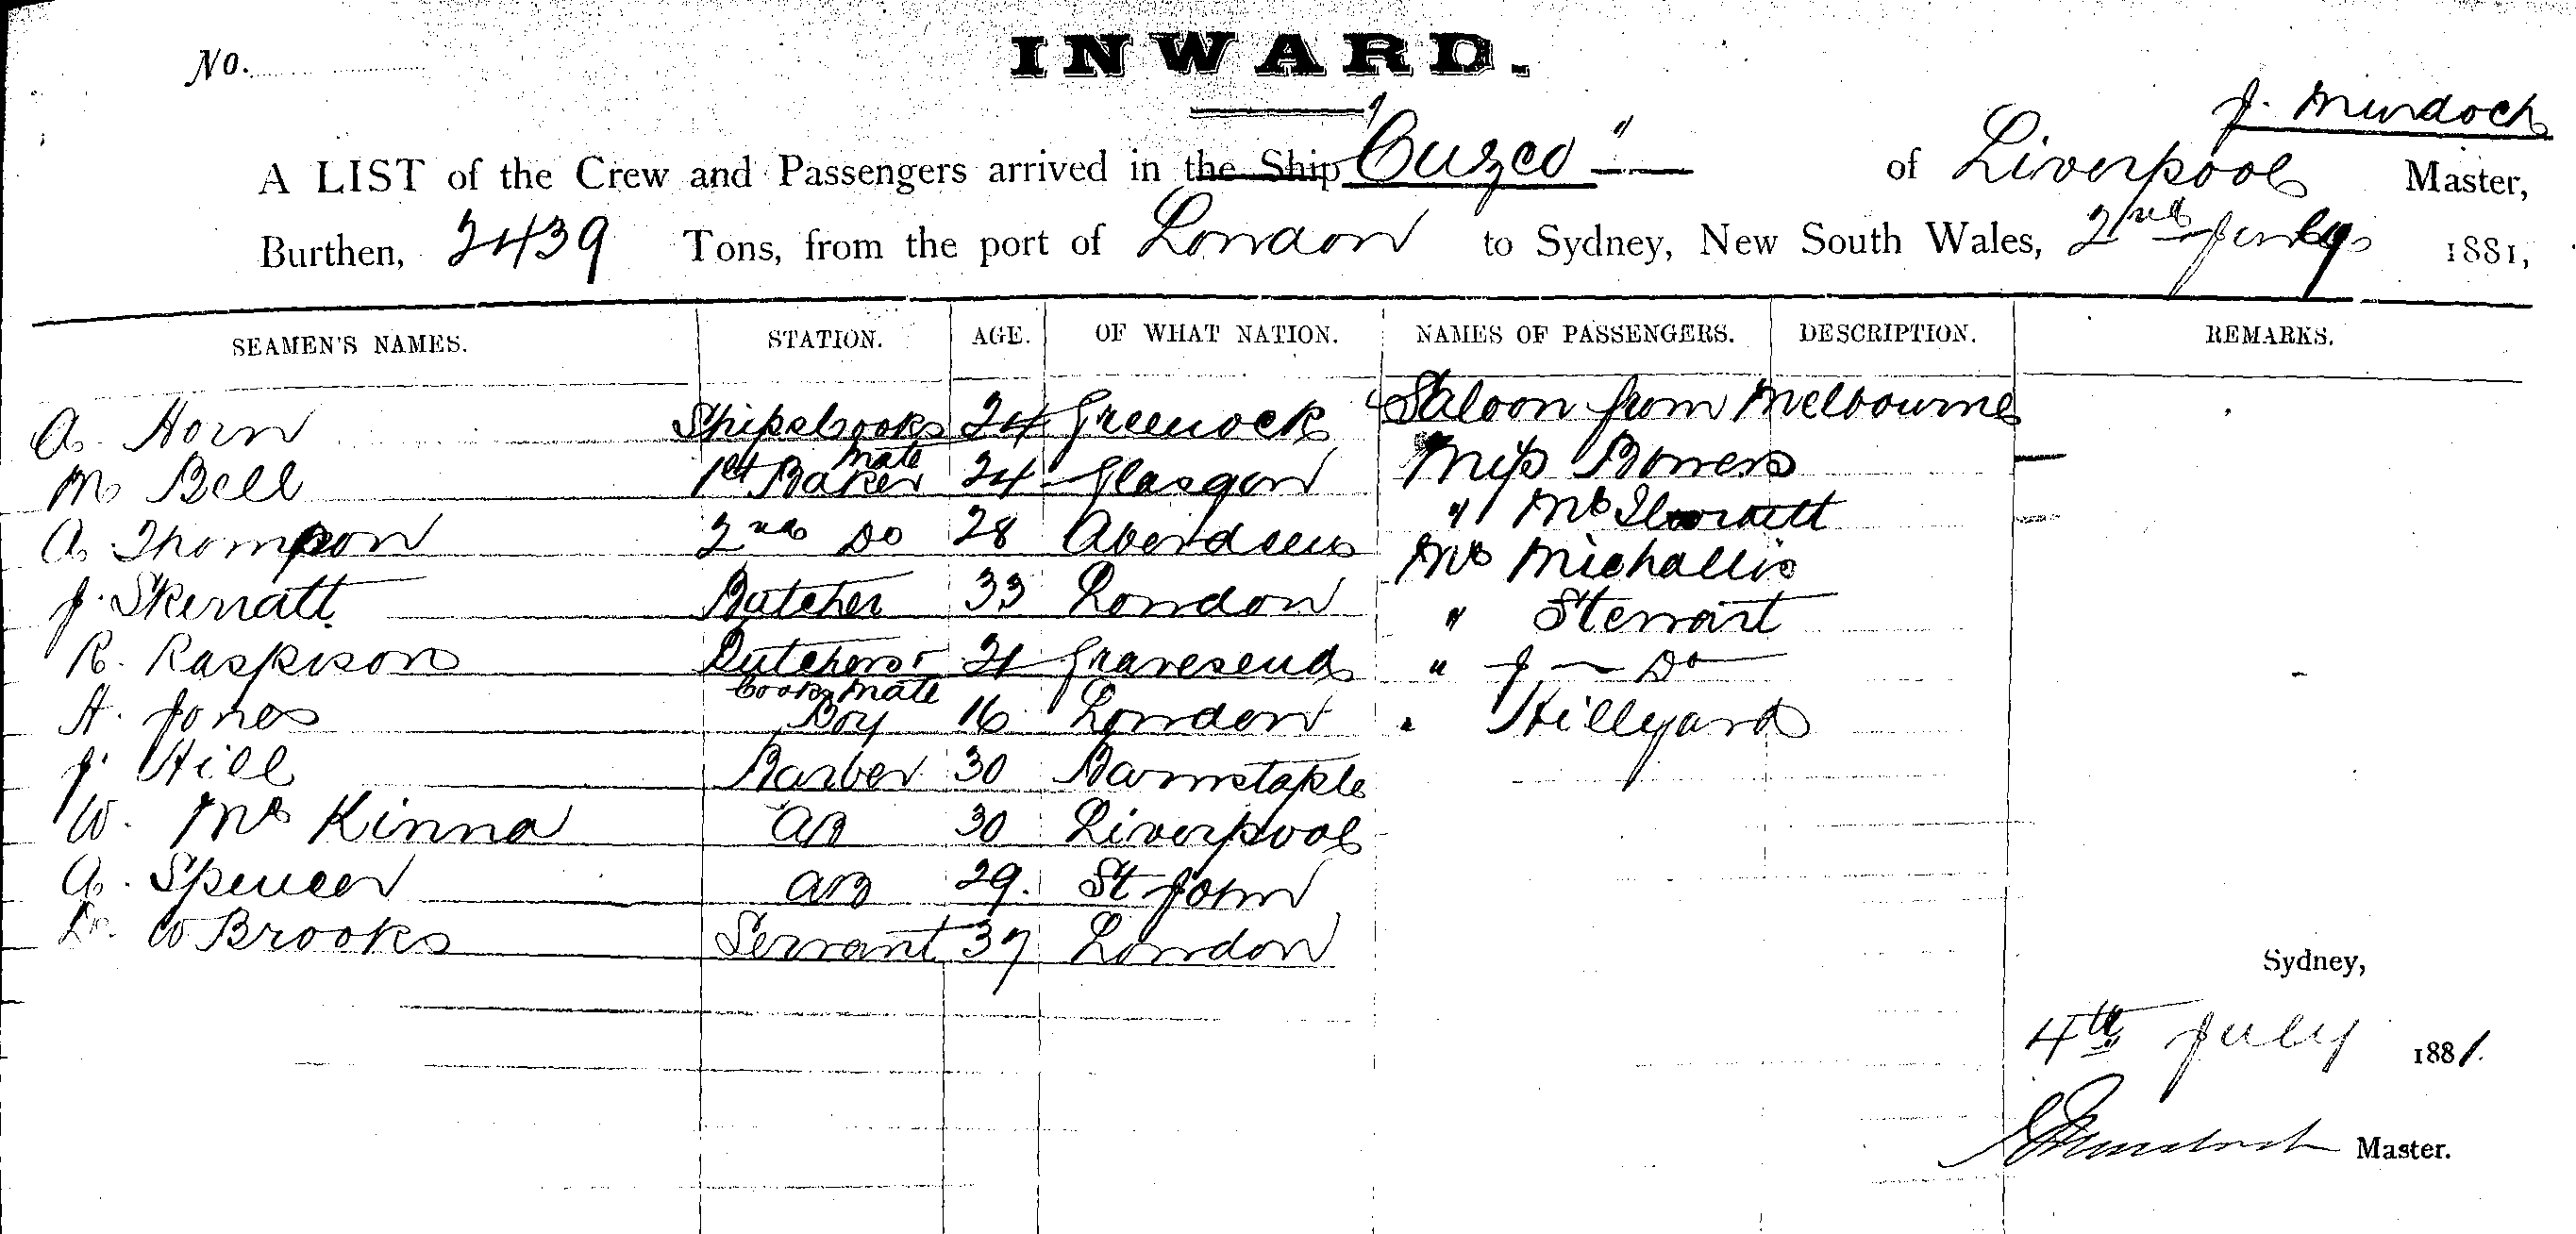 No.
INWARD.
J. Murdoch
A LIST of the Crew and Passengers arrived in the Ship "Cuzco" of Liverpool Master,
Burthen, 2439 Tons, from the port of London to Sydney, New South Wales, 2nd July 1881,
SEAMEN'S NAMES. STATION. AGE. OF WHAT NATION. NAMES OF PASSENGERS. DESCRIPTION. REMARKS.
A. Horn Ships Cooks Mate 24 Greenock Saloon from Melbourne
M Bell 1st Baker 24 Glasgow Miss Bowers
A. Thompson 2nd Do 28 Aberdeen " Mc
J. Skerratt Butcher 33 London Mr Michallis
R. Raspison Butchers 21 Gravesend " Stewart
A. Jones Cooks Mate Boy 16 London " J Do
J. Hill Barber 30 Barnstaple " Hillyard
W. McKinna AB 30 Liverpool
A. Spencer AB 29. St John
W Brooks Servant 37 London
Sydney,
4th July 1881.
J Murdoch Master.